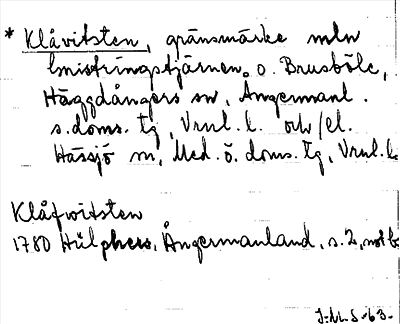 * Klåvitsten, gränsmärke mln
Gnistringstjärnen o. Brusböle,
Häggdångers sn, Ångermanl.
s. doms. tg, Vrnl. l. och/el.
Hässjö sn, Med. ö. doms. tg, Vrnl. l.
Klåfwitsten
1780 Hülphers, Ångermanland, s. 2, not b